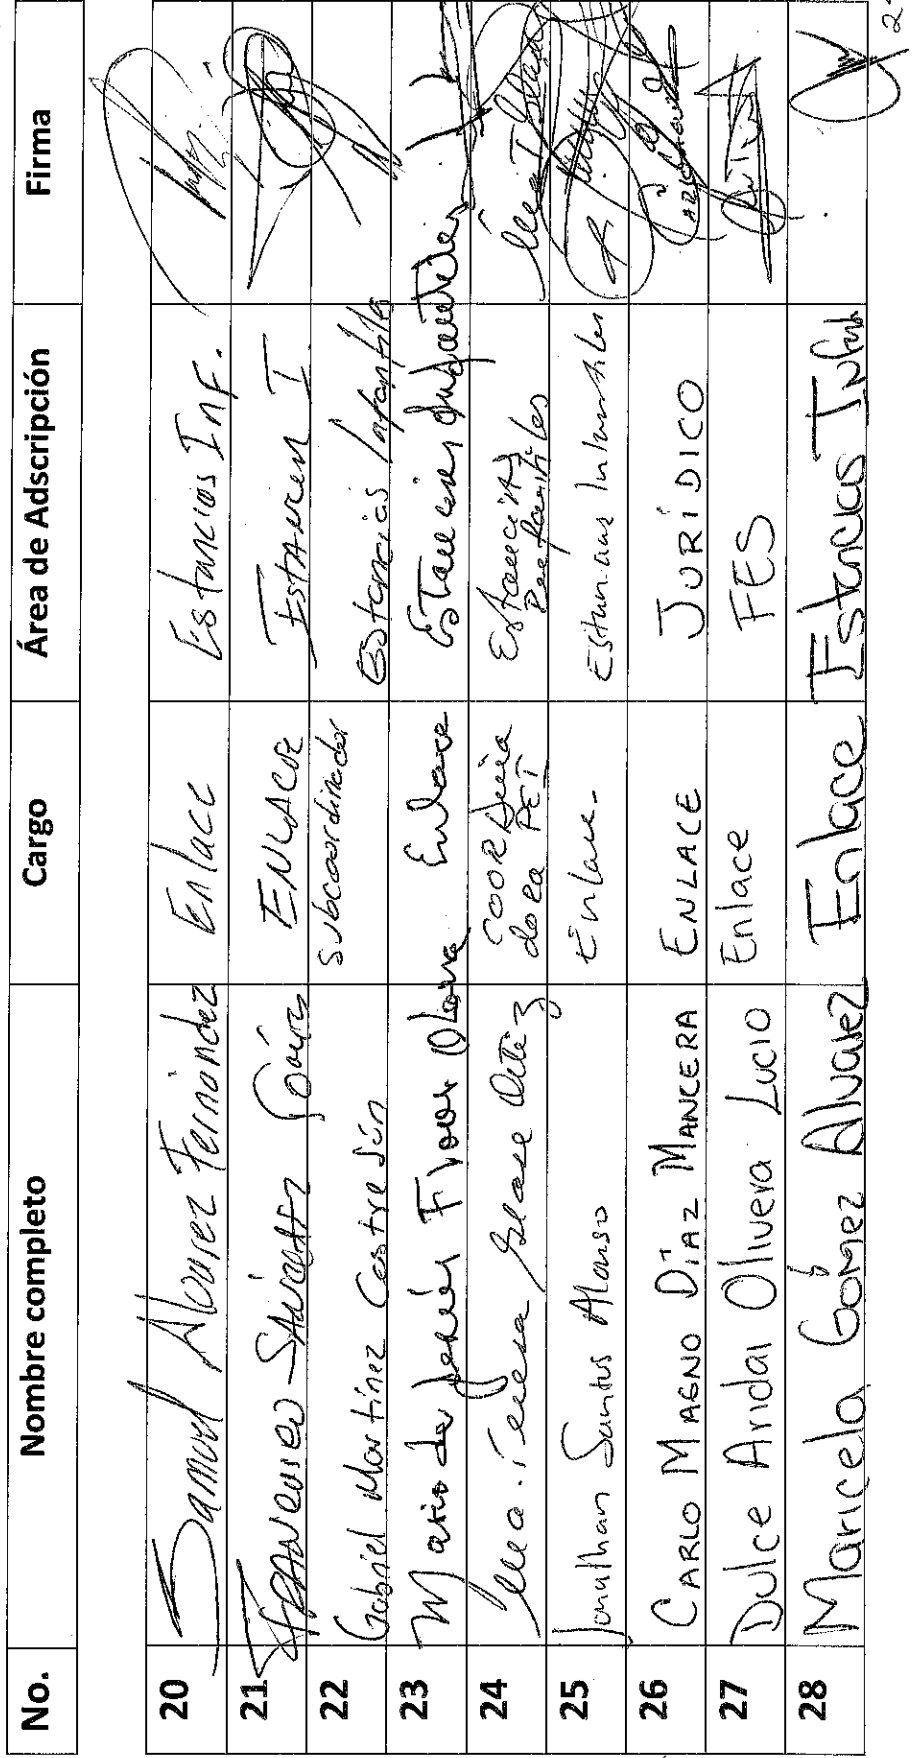 No. Nombre completo Cargo Área de Adscripción Firma
20 Samuel Alvarez Fernández Enlace Estancias Inf.
21 Francisco Sánchez García ENLACE Estancia I
22 Gabriel Martínez Castrejón Subcoordinador Estancias Infantiles
23 Maria de Jesús Flores Enlace Estancias Infantiles
24 Ma. Teresa Ortiz COORDina Estancias
dora PET Infantiles
25 Jonathan Santos Alonso Enlace. Estancias Infantiles
26 CARLO MAGNO DÍAZ MANCERA ENLACE JURÍDICO
27 Dulce Aridai Olivera Lucio Enlace FES
28 Maricela Gómez Alvarez Enlace Estancias Infan